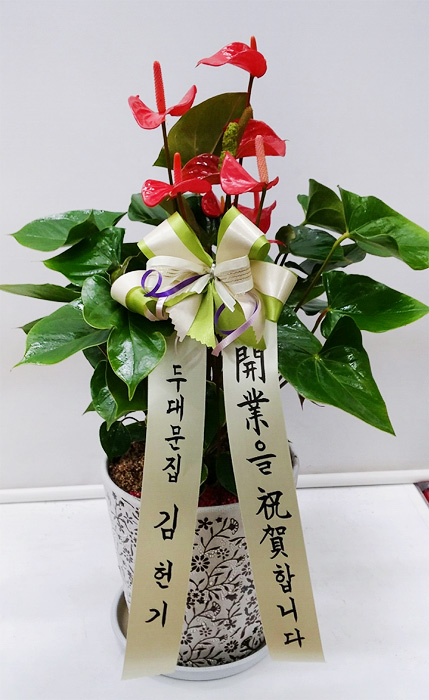 두대문집 김헌기
開業을 祝賀합니다